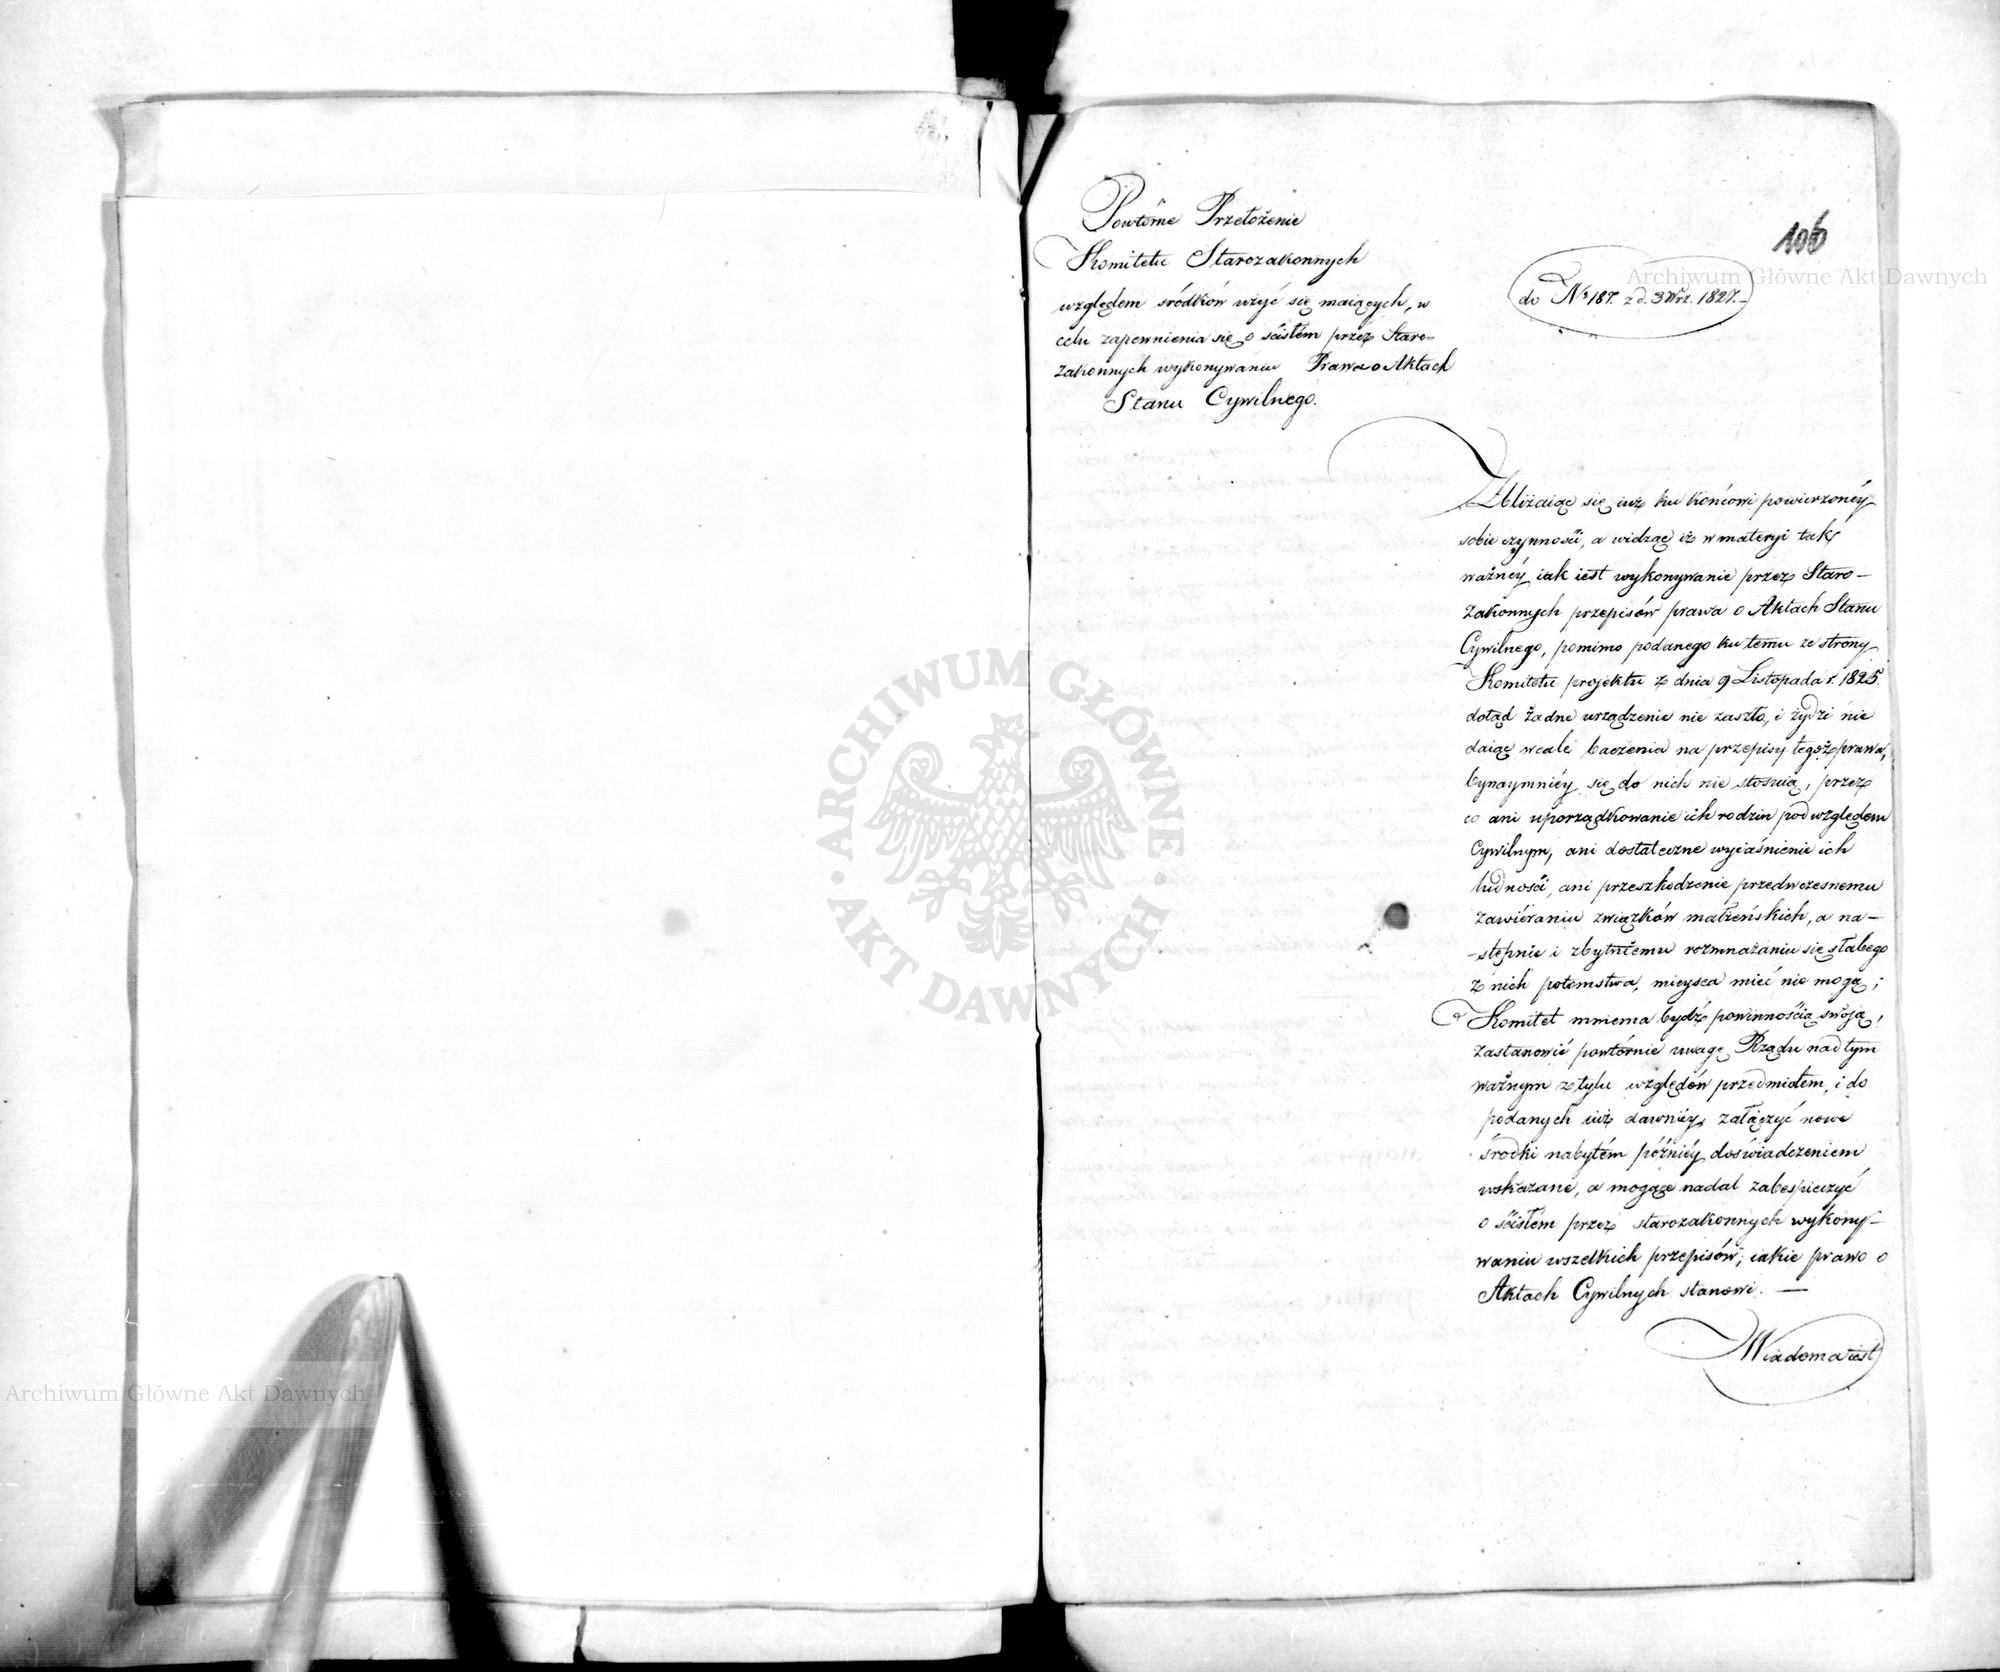 Powtórne Przełożenie
Komitetu Starozakonnych
względem śródków użyć się maiących, w
celu zapewnienia się o ścisłém przez Staro-
zakonnych wykonywaniu Prawa o Aktach
Stanu Cywilnego.
106
do Nr 187. z d. 3 Wrz. 1827.
Zbliżaiąc się iuż ku końcowi powierzonéy
sobie czynności, a widząc iż w materyi tak
ważnéy iak iest wykonywanie przez Staro-
zakonnych przepisów prawa o Aktach Stanu
Cywilnego, pomimo podanego ku temu ze strony
Komitetu projektu z dnia 9 Listopada r. 1825.
dotąd żadne urządzenie nie zaszło, i żydzi nie
daiąc wcale baczenia na przepisy tegoż prawa,
bynaymniéy się do nich nie stosuią, przez
co ani uporządkowanie ich rodzin pod względem
Cywilnym, ani dostateczne wyiaśnienie ich
ludności, ani przeszkodzenie przedwczesnemu
zawiéraniu związków małżeńskich, a na-
-stępnie i zbytniemu rozmnażaniu się słabego
z nich potomstwa, mieysca mieć nie mogą;
Komitet mniema bydź powinnością swoją,
zastanowić powtórnie uwagę Rządu nad tym
ważnym z tylu względów przedmiotem, i do
podanych iuż dawniéy, załączyć nowe
środki nabytém późniéy doświadczeniem
wskazane, a mogące nadal zabespieczyć
o ścisłém przez starozakonnych wykony-
waniu wszelkich przepisów, iakie prawo o
Aktach Cywilnych stanowi. —
Wiadoma iest
Archiwum Główne Akt Dawnych
ARCHIWUM GŁÓWNE AKT DAWNYCH
Archiwum Główne Akt Dawnych